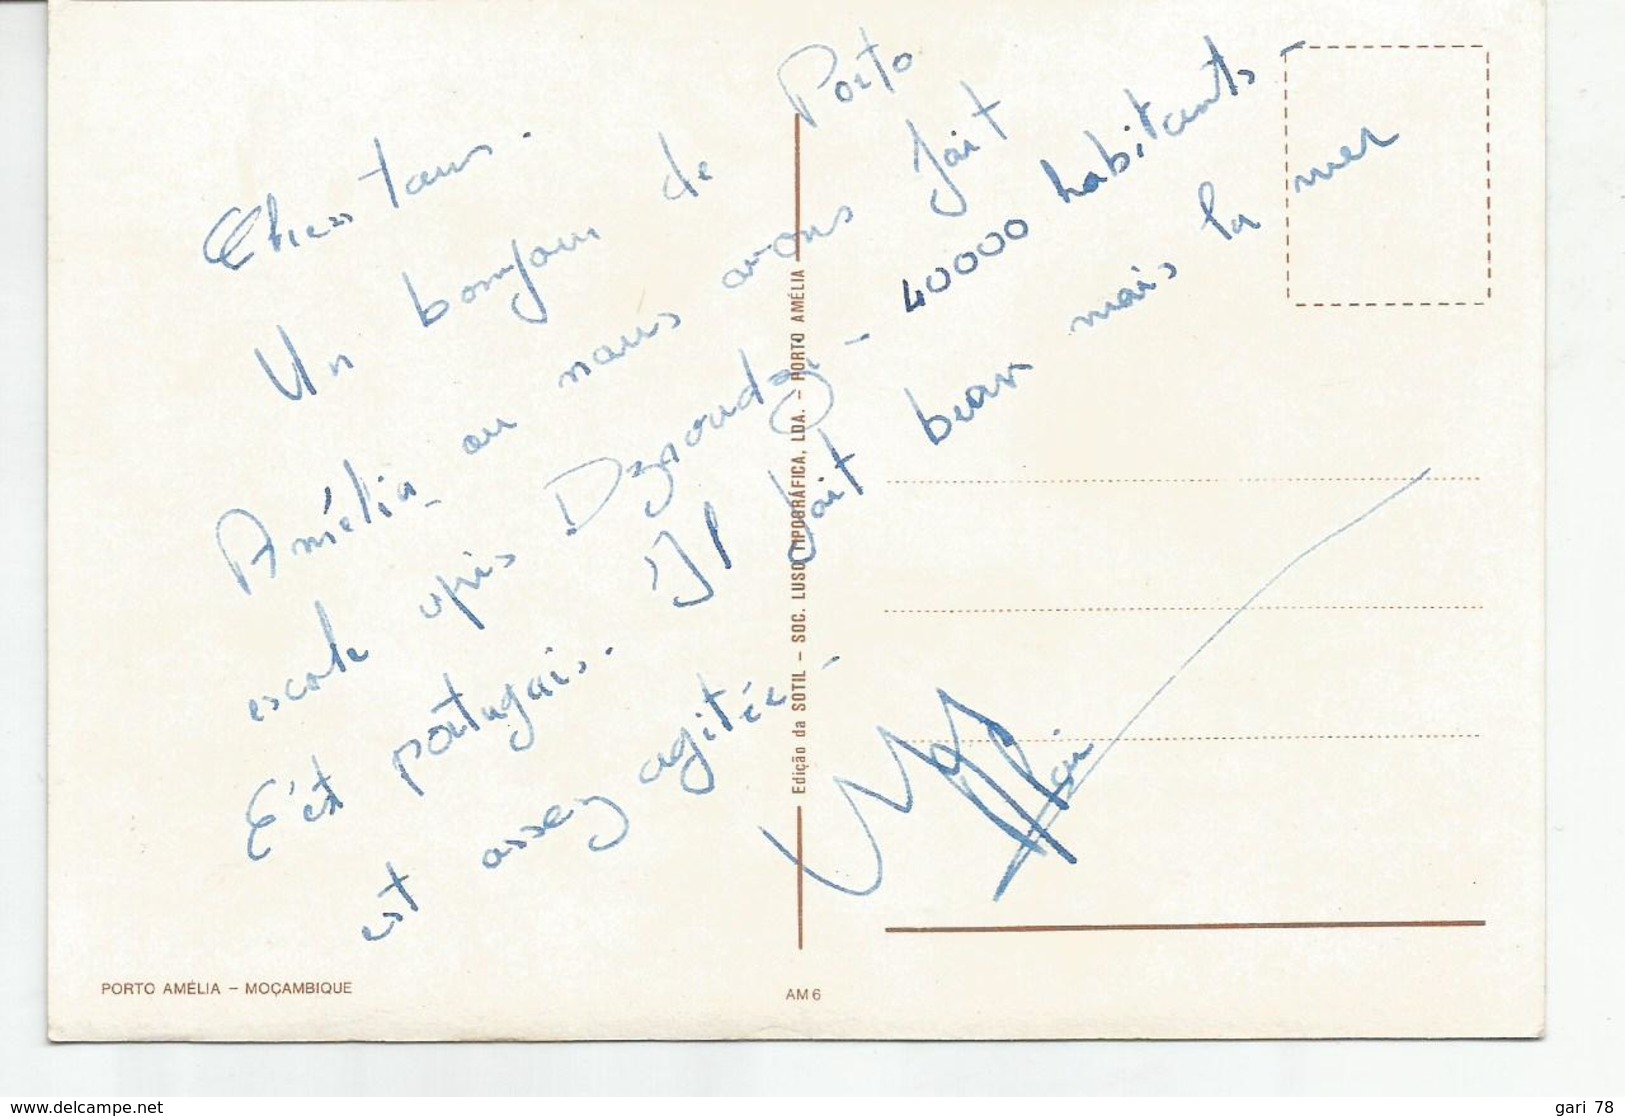 Chers tous.
Un bonjour de Porto
Amélia où nous avons fait
escale après Dzaoudzi - 40000 habitants -
C'est portugais. Il fait beau mais la mer
est assez agitée -
Edição da SOTIL – SOC. LUSO TIPOGRÁFICA, LDA. – PORTO AMÉLIA
PORTO AMÉLIA – MOÇAMBIQUE
AM 6
www.delcampe.net
gari 78